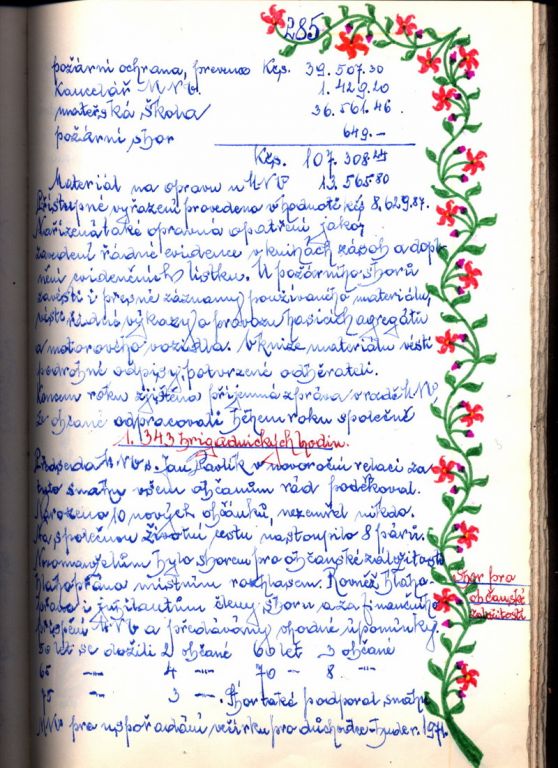 285
požární ochrana, prevence Kčs. 39.507.30
Kancelář MNV. 1.429.20
mateřská škola 36.561.46
požární sbor 649.-
Kčs. 107.308
Materiál na opravu u MNV 13.56580
Přístupné vyřazení provedeno v hodnotě kčs 8,629.87.
Nařízena také opravná opatření jako,
zavedení řádné evidence v knihách zásob a dopl-
nění evidenčních lístku. U požárního sboru
zavésti i přesné záznamy používaného materiálu,
vésti řádné výkazy o provozu hasicích agregátů
a motorového vozidla. V knize materiálu vésti
podrobné odpisy, potvrzené odběrateli.
Koncem roku zjištěna příjemná zpráva v radě MNV,
že občané odpracovali během roku společně
1.343 brigádnických hodin.
Předseda MNV s. Jan Pavlík v novoroční relaci za
tyto snahy všem občanům rád poděkoval.
Narozeno 10 nových občánků, nezemřel nikdo.
Na společnou životní cestu nastoupilo 8 párů.
Novomanželům bylo sborem pro občanské záležitosti
blahopřáno místním rozhlasem. Rovněž blaho-
přáno i jubilantům členy sboru a za finančního
přispění MNV a předávány vhodné upomínky.
Sbor pro
občanské
záležitosti
50 let se dožili 2 občané 60 let 3 občané
65 -"- 4 -"- 70 - 8 -"-
75 -"- 3 -"-. Sbor také podporal snahu
MNV pro uspořádání večírku pro důchodce - bude r. 1971.